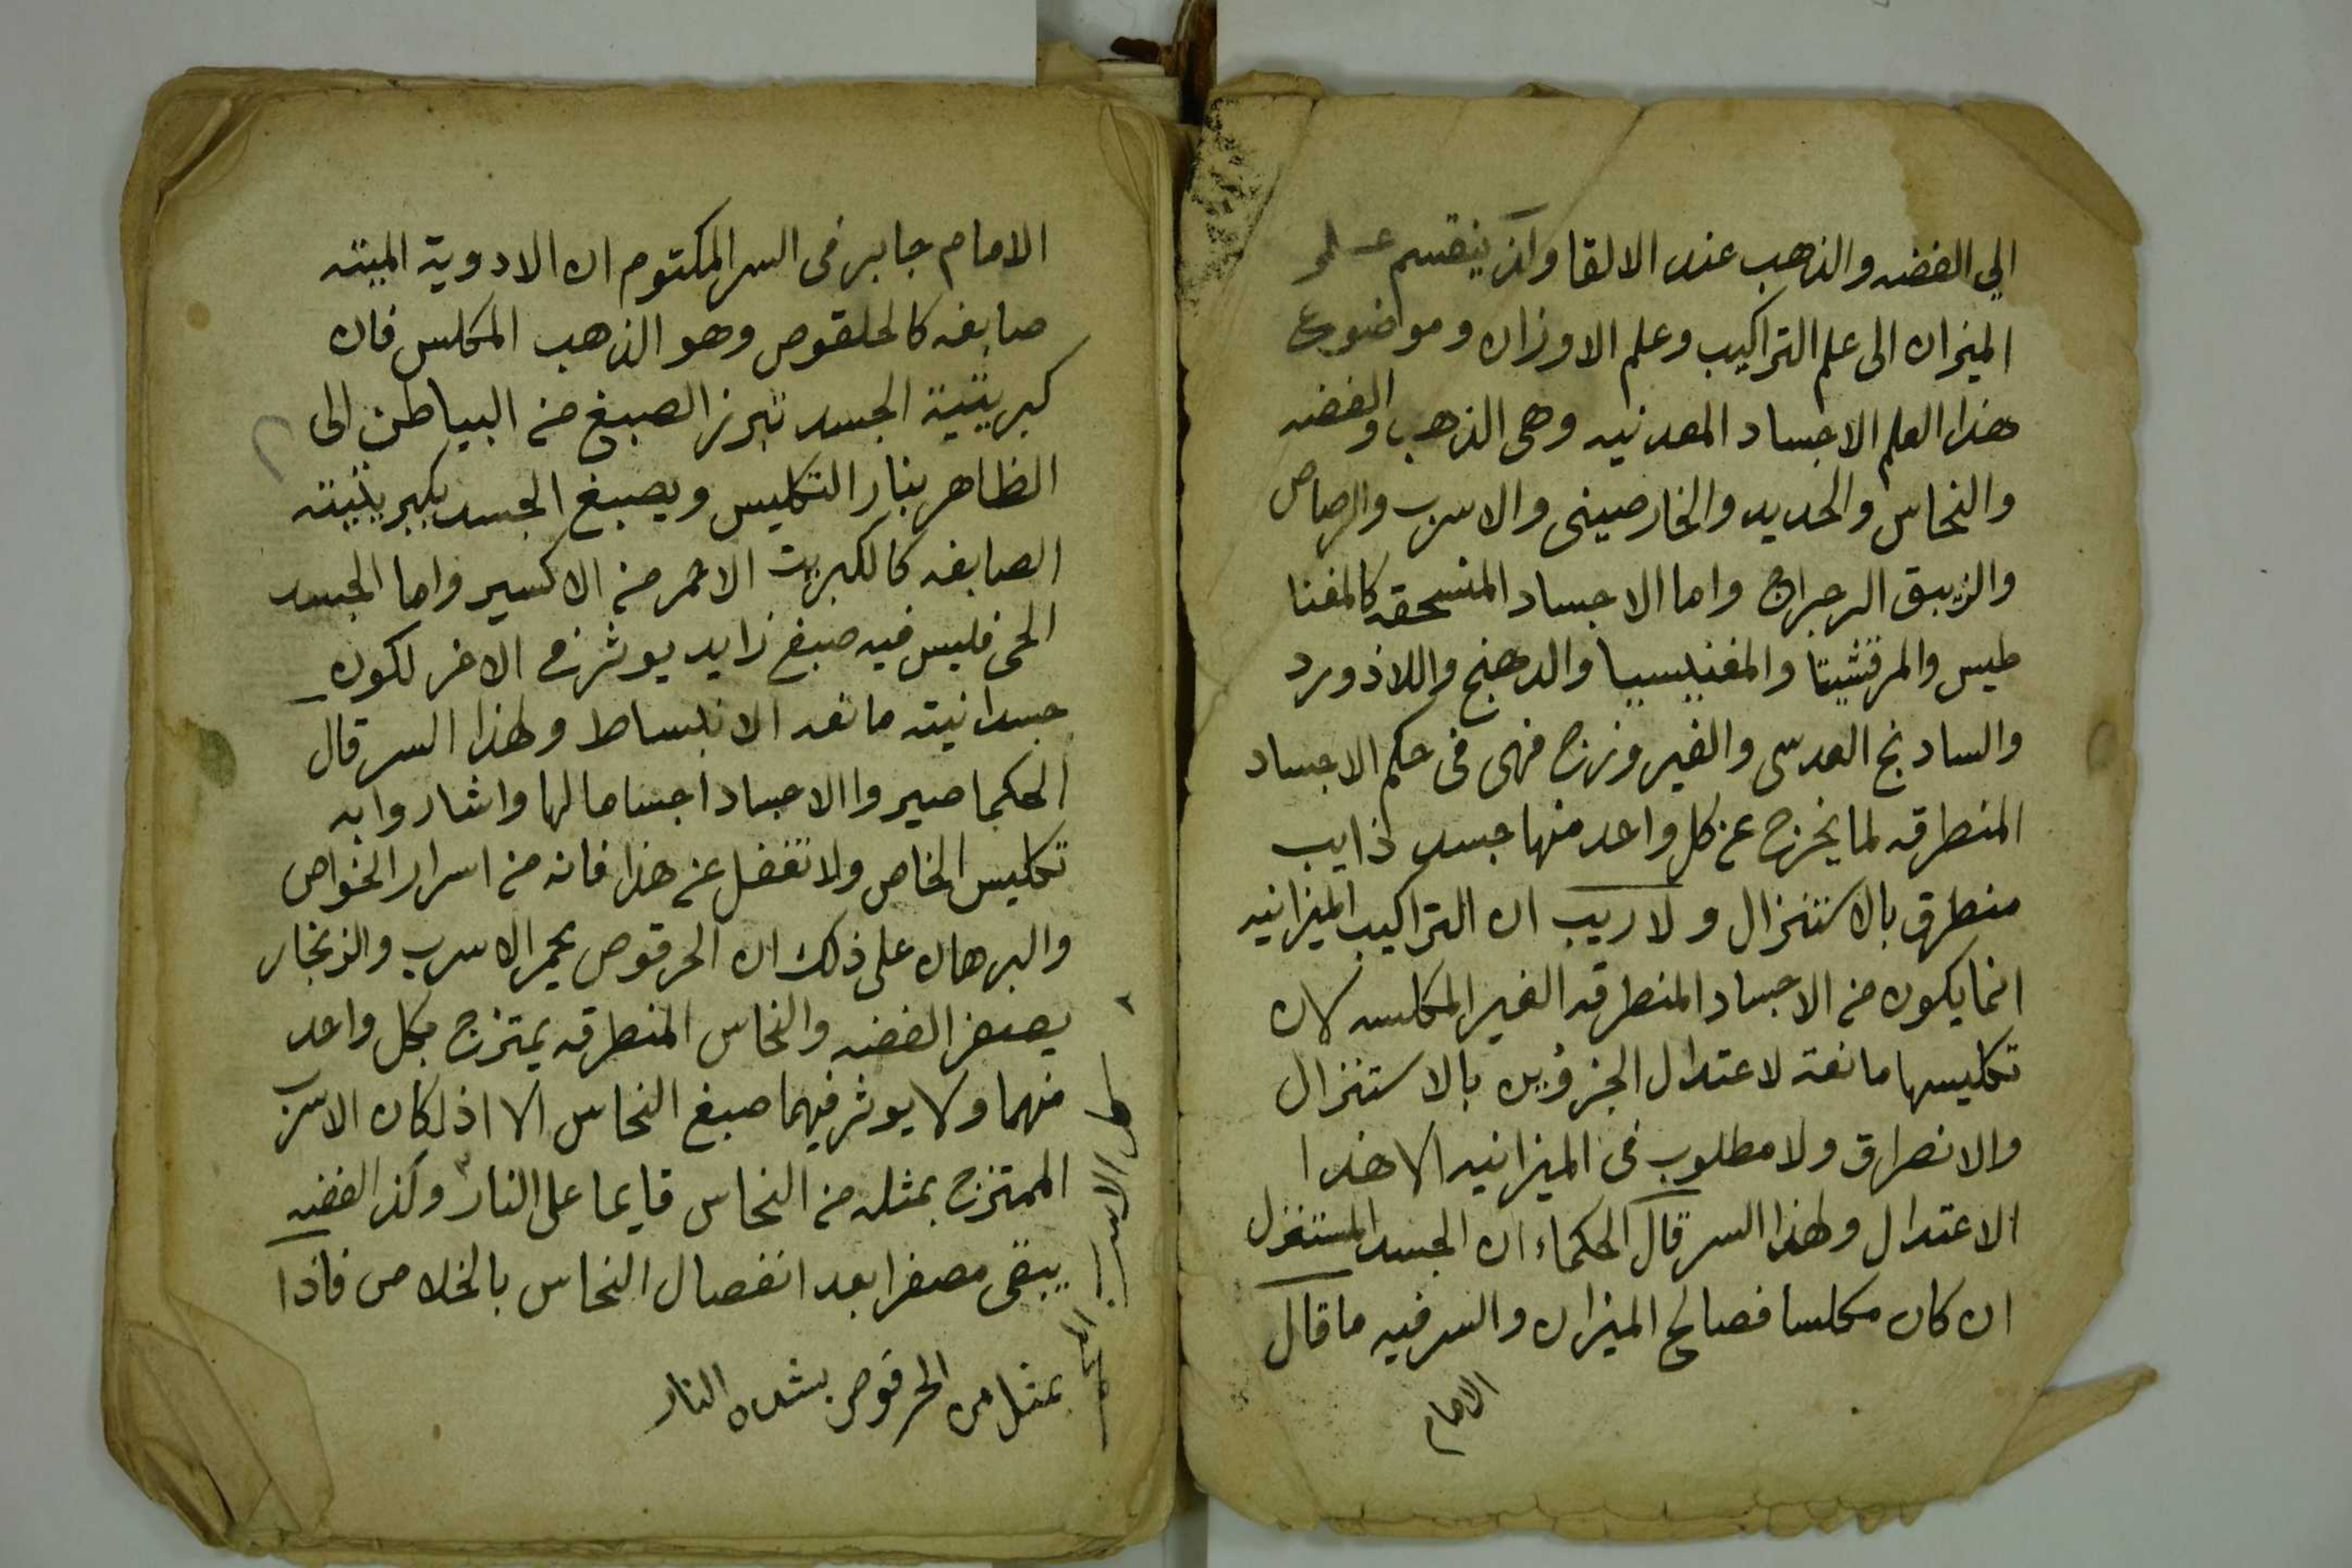 الي الفضه والذهب عند الالقا واذ ينقسم علم
الميزان الى علم التراكيب وعلم الاوزان ومواضوع
هذا العلم الاجساد المعدنيه وهى الذهب والفضه
والنحاس والحديد والخارصينى والاسرب والرصاص
والزيبق الرجراج واما الاجساد المنسحقه كالمغنا
طيس والمرقشيتا والمغنيسيا والدهنج واللاذورد
والسادنج العدسى والفيروزج فهى فى حكم الاجساد
المنطرقه لما يخرج عن كل واحد منها جسد ذايب
منطرق بالاستنزال ولا ريب ان التراكيب الميزانيه
انما يكون من الاجساد المنطرقه الغير المكلسه لان
تكليسها مانعة لاعتدال الجزؤين بالاستنزال
والانصراق ولا مطلوب فى الميزانيه الا هذا
الاعتدال ولهذا السر قال الحكماء ان الجسد المستنزل
ان كان مكلسا فصالح الميزان والسر فيه ما قال
الامام
الامام جابر فى السر المكتوم ان الادوية الميته
صابغه كالحلقوص وهو الذهب المكلس فان
كبريتية الجسد تبرز الصبغ من البياطن الى
الظاهر بنار التكليس ويصبغ الجسد بكبريتيته
الصابغه كالكبريت الاحمر من الاكسير واما الجسد
الحى فليس فيه صبغ زايد يوثر فى الاخر لكون
جسدانيته مانعه الانبساط ولهذا السر قال
الحكما صيروا الاجساد اجساما لها واشاروا به
تكليس الخاص ولا تغفل عن هذا فانه من اسرار الخواص
والبرهان على ذلك ان الحرقوص يحمر الاسرب والزنجار
يصفر الفضه والنحاس المنطرقه يمتزج بكل واحد
منهما ولا يوثر فيهما صبغ النحاس الا اذا كان الاسرب
الممتزج بمثله من النحاس قايما على النار وكذا الفضه
يبقى مصفرا بعد انفصال النحاس بالخلاص فاذا
بمثل من الحرقوص بشده النار